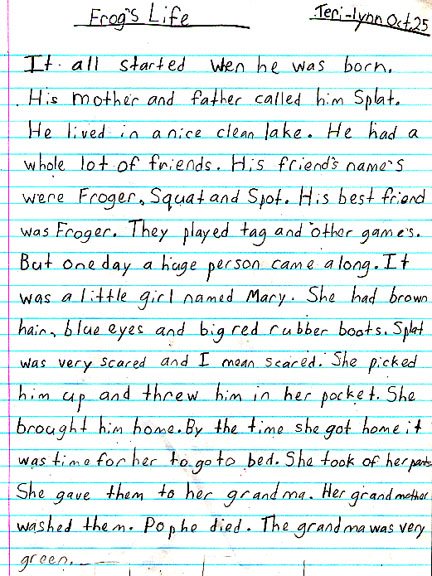 Frog's Life
Teri-lynn Oct, 25
It all started wen he was born.
His mother and father called him Splat.
He lived in a nice clean lake. He had a
whole lot of friends. His friend's name's
were Froger, Squat and Spot. His best friend
was Froger. They played tag and other game's.
But one day a huge person came along. It
was a little girl named Mary. She had brown
hair, blue eyes and big red rubber boots. Splat
was very scared and I mean scared. She picked
him up and threw him in her pocket. She
brought him home. By the time she got home it
was time for her to go to bed. She took of her pants
She gave them to her grandma. Her grandmother
washed them. Pop he died. The grandma was very
green.